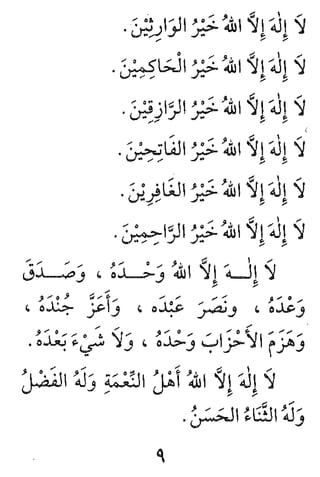 لَا إِلٰهَ إِلَّا اللهُ خَيْرُ الوَارِثِيْنَ.
لَا إِلٰهَ إِلَّا اللهُ خَيْرُ الْحَاكِمِيْنَ.
لَا إِلٰهَ إِلَّا اللهُ خَيْرُ الرَّازِقِيْنَ.
لَا إِلٰهَ إِلَّا اللهُ خَيْرُ الفَاتِحِيْنَ.
لَا إِلٰهَ إِلَّا اللهُ خَيْرُ الغَافِرِيْنَ.
لَا إِلٰهَ إِلَّا اللهُ خَيْرُ الرَّاحِمِيْنَ.
لَا إِلٰـهَ إِلَّا اللهُ وَحْـدَهُ ، وَصَـدَقَ
وَعْدَهُ ، ونَصَرَ عَبْدَه ، وَأَعَزَّ جُنْدَهُ ،
وَهَزَمَ الأَحْزَابَ وَحْدَهُ ، وَلَا شَيْءَ بَعْدَهُ.
لَا إِلٰهَ إِلَّا اللهُ أَهْلُ النِّعْمَةِ وَلَهُ الفَضْلُ
وَلَهُ الثَّنَاءُ الحَسَنُ.
٩